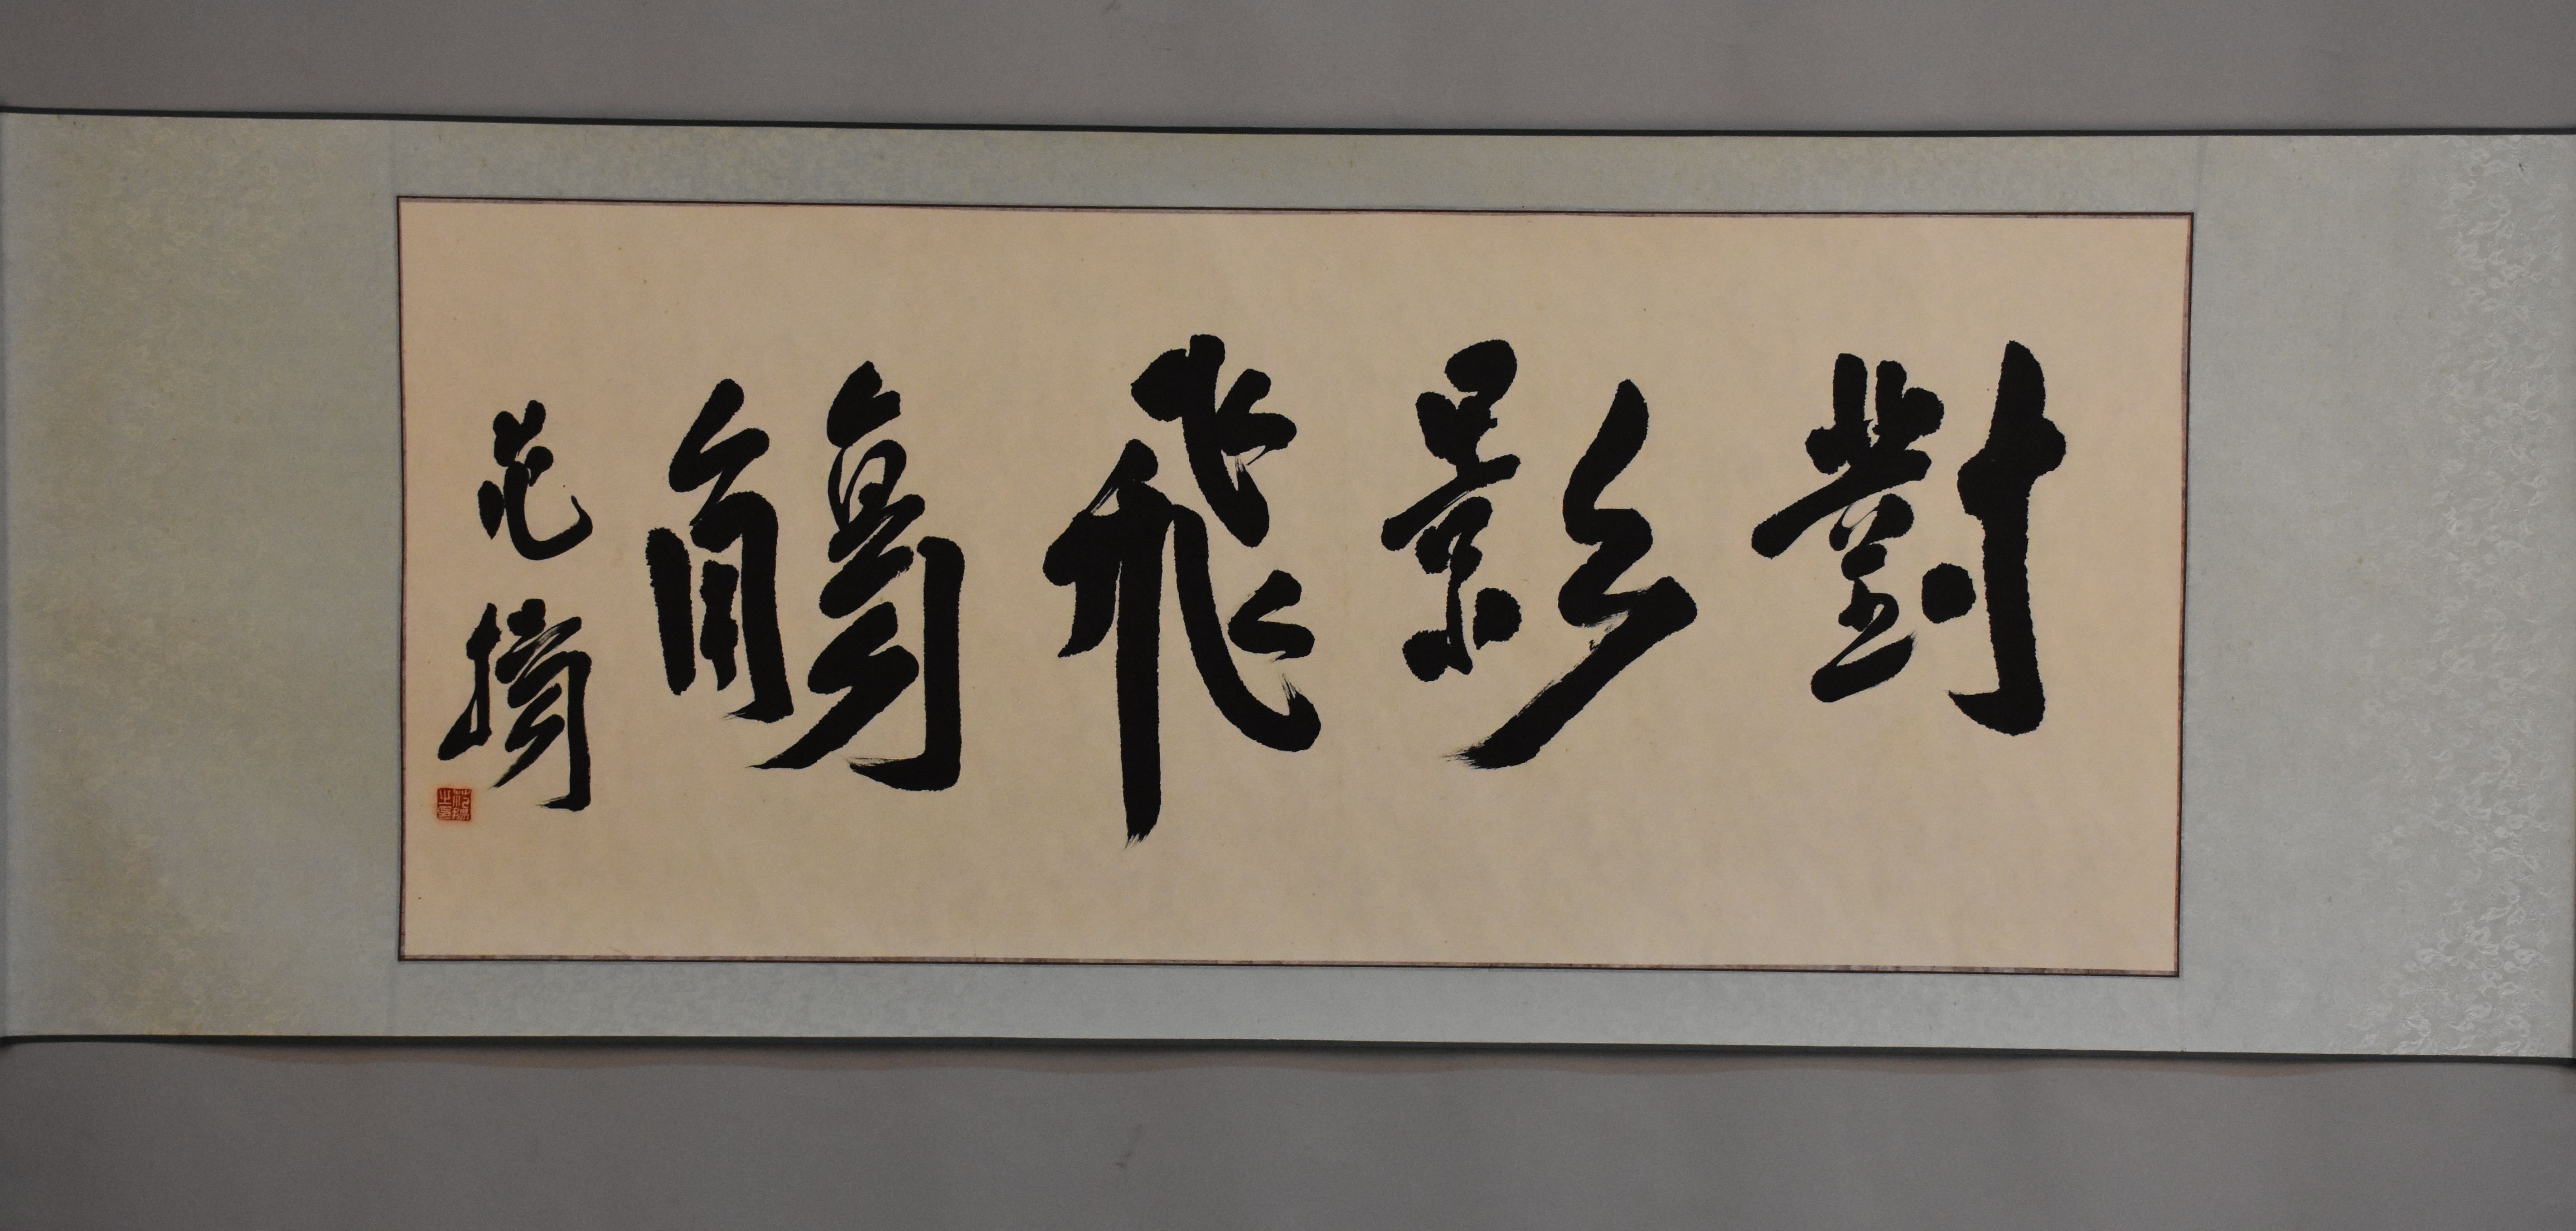 對影飛觴
范搞